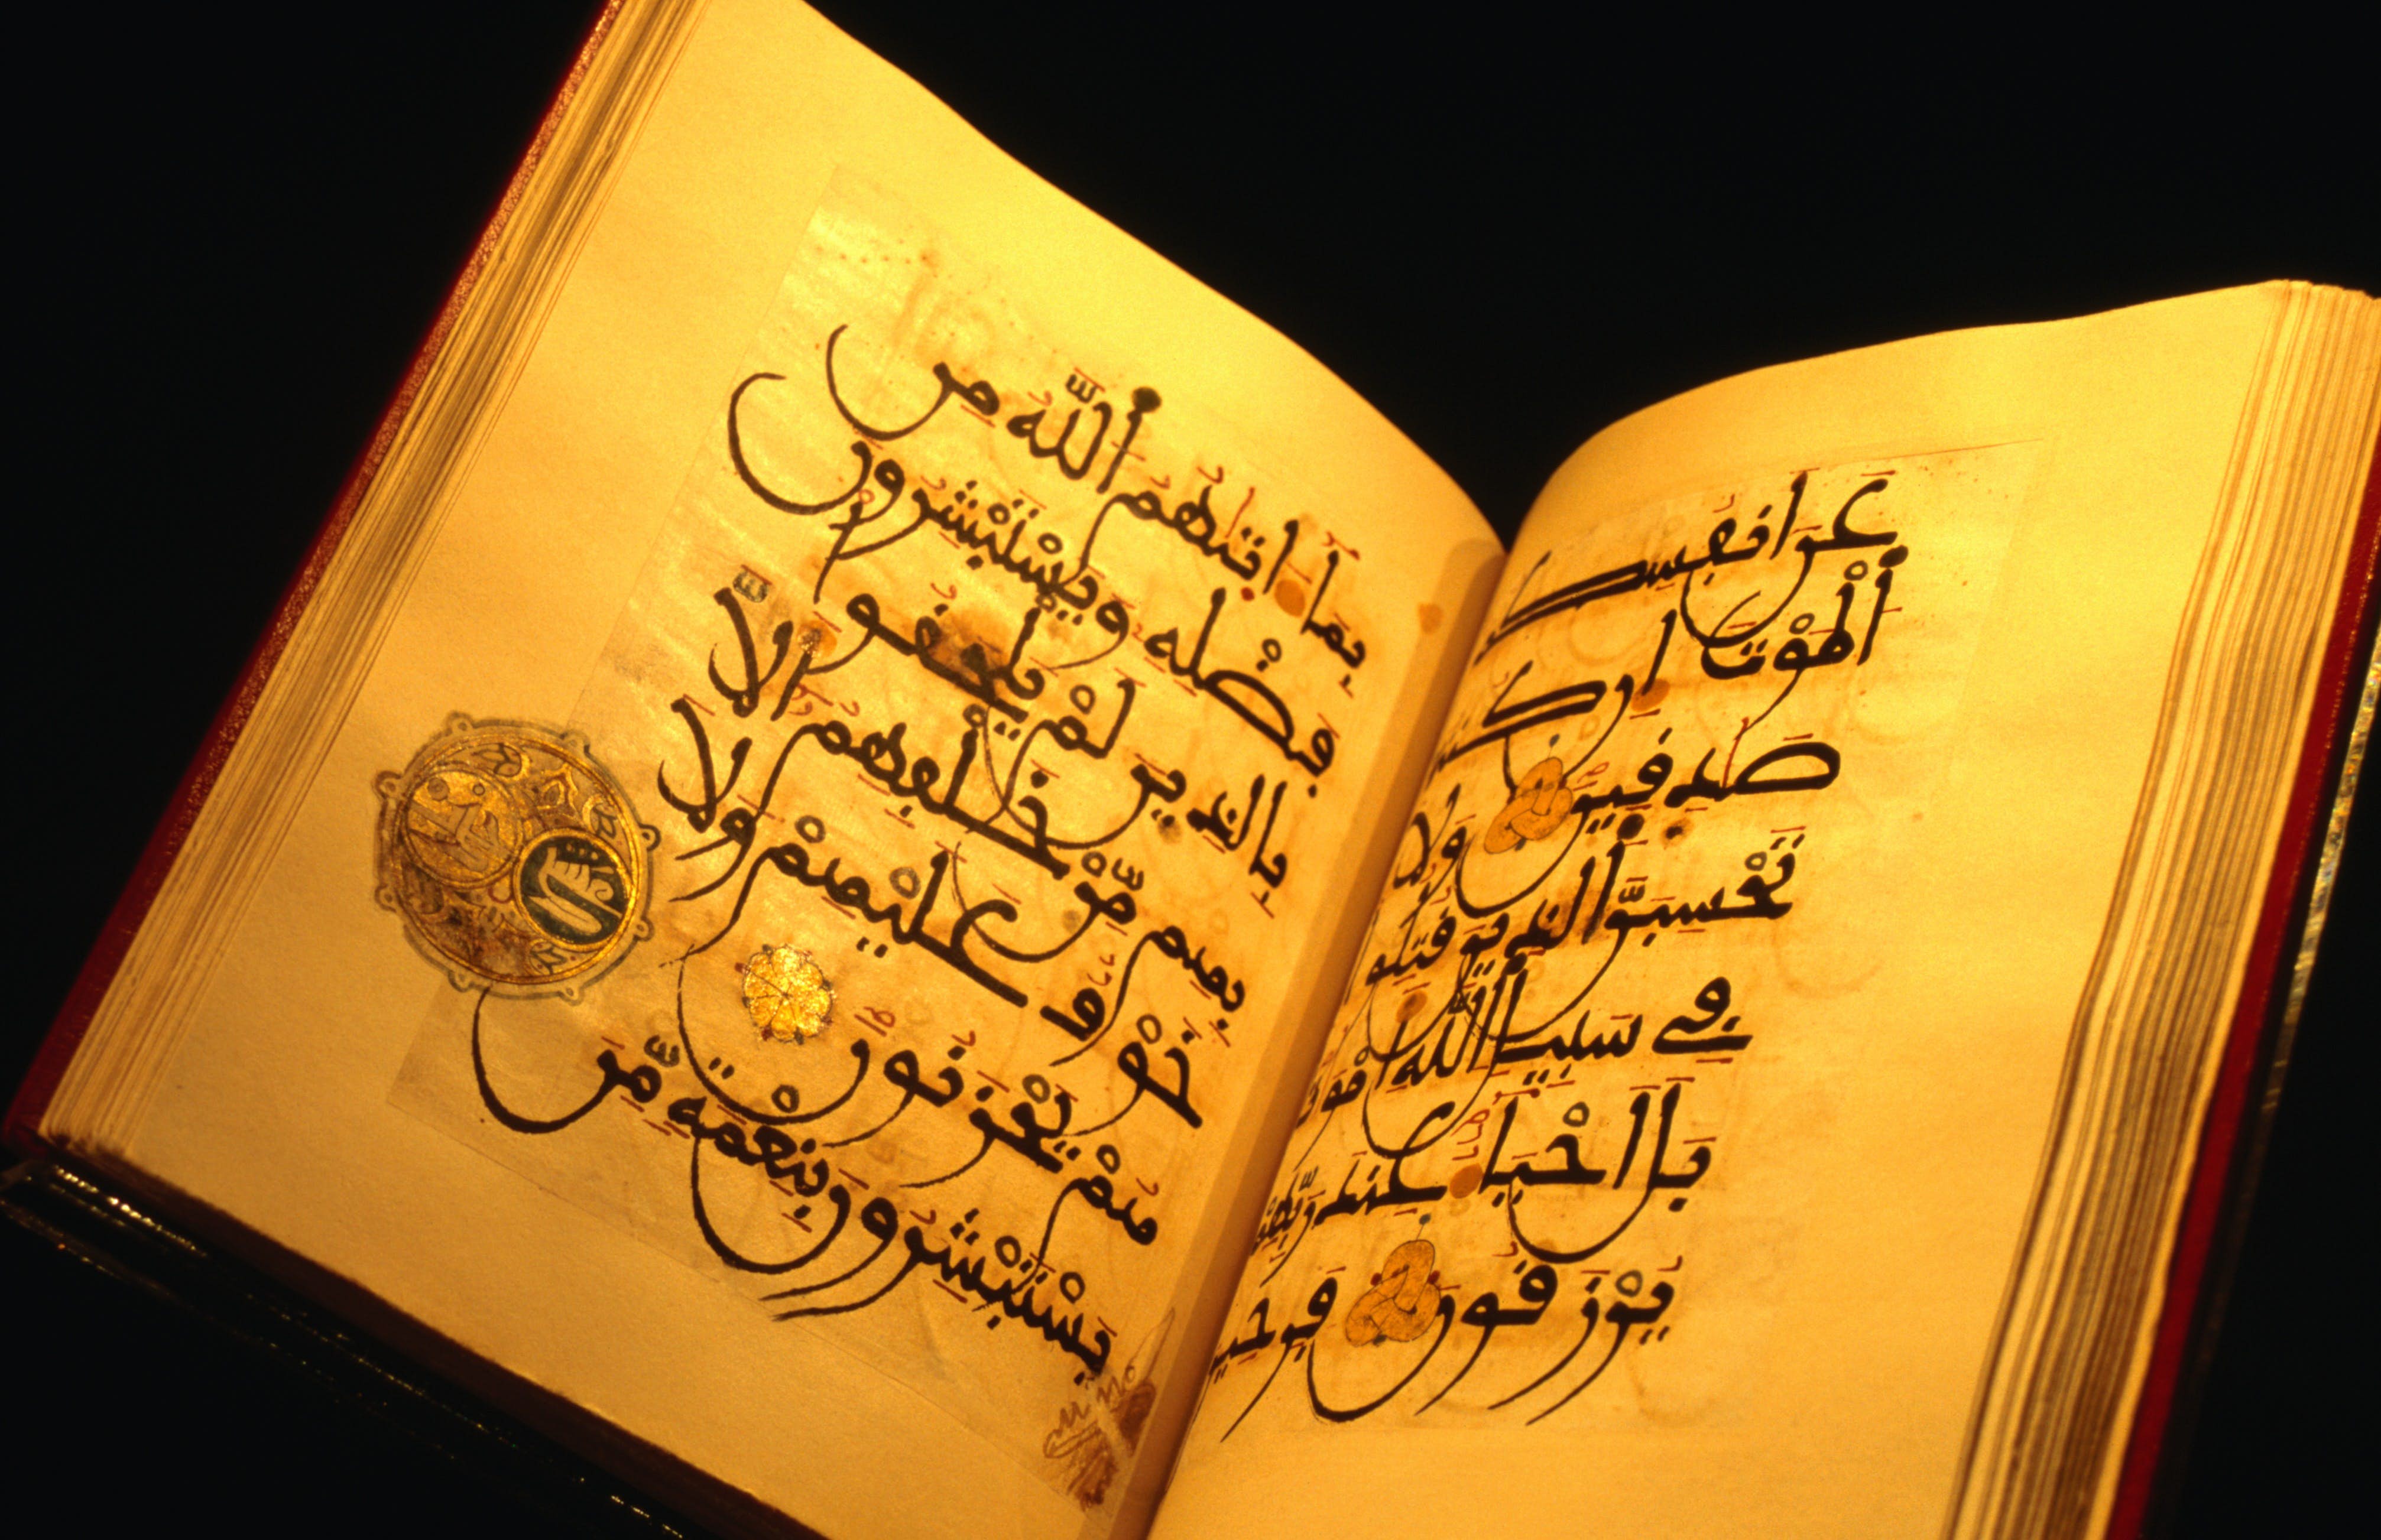 عَنَ اَنفُسِكُ
اُلْمَوْتَ إِن ك
صَٰدِفِينَ وَلَا
تَحْسِبَنَّ اَلذِينَ فُتِلُو
فِے سَبِيلِ اِللَّهِ أَمْوَٰتَ
بَلَ اَحْيَآءٌ عِندَ رَبِّهِمْ
يُرْزَفُونَ فَرِحِي
بِمَآ ءَاتَىٰهُمُ اُللَّهُ مِن
فَضْلِهِۦ وَيَسْتَبْشِرُونَ
بِالذِينَ لَمْ يَلْحَفُواْ
بِهِم مِّنْ خَلْفِهِمُۥٓ أَلَّا
خَوْفٌ عَلَيْهِمْ وَلَا
هُمْ يَحْزَنُونَ
يَسْتَبْشِرُونَ بِنِعْمَةٍ مِّنَ